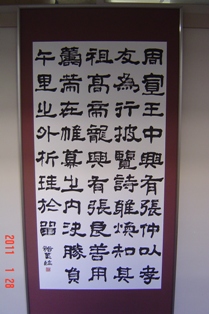 周宣王中興有張仲以孝
友為行披覽詩雅煥知其
祖高帝龍興有張良善用
籌策在帷幕之內決勝負
千里之外析珪於留
2011 1 28